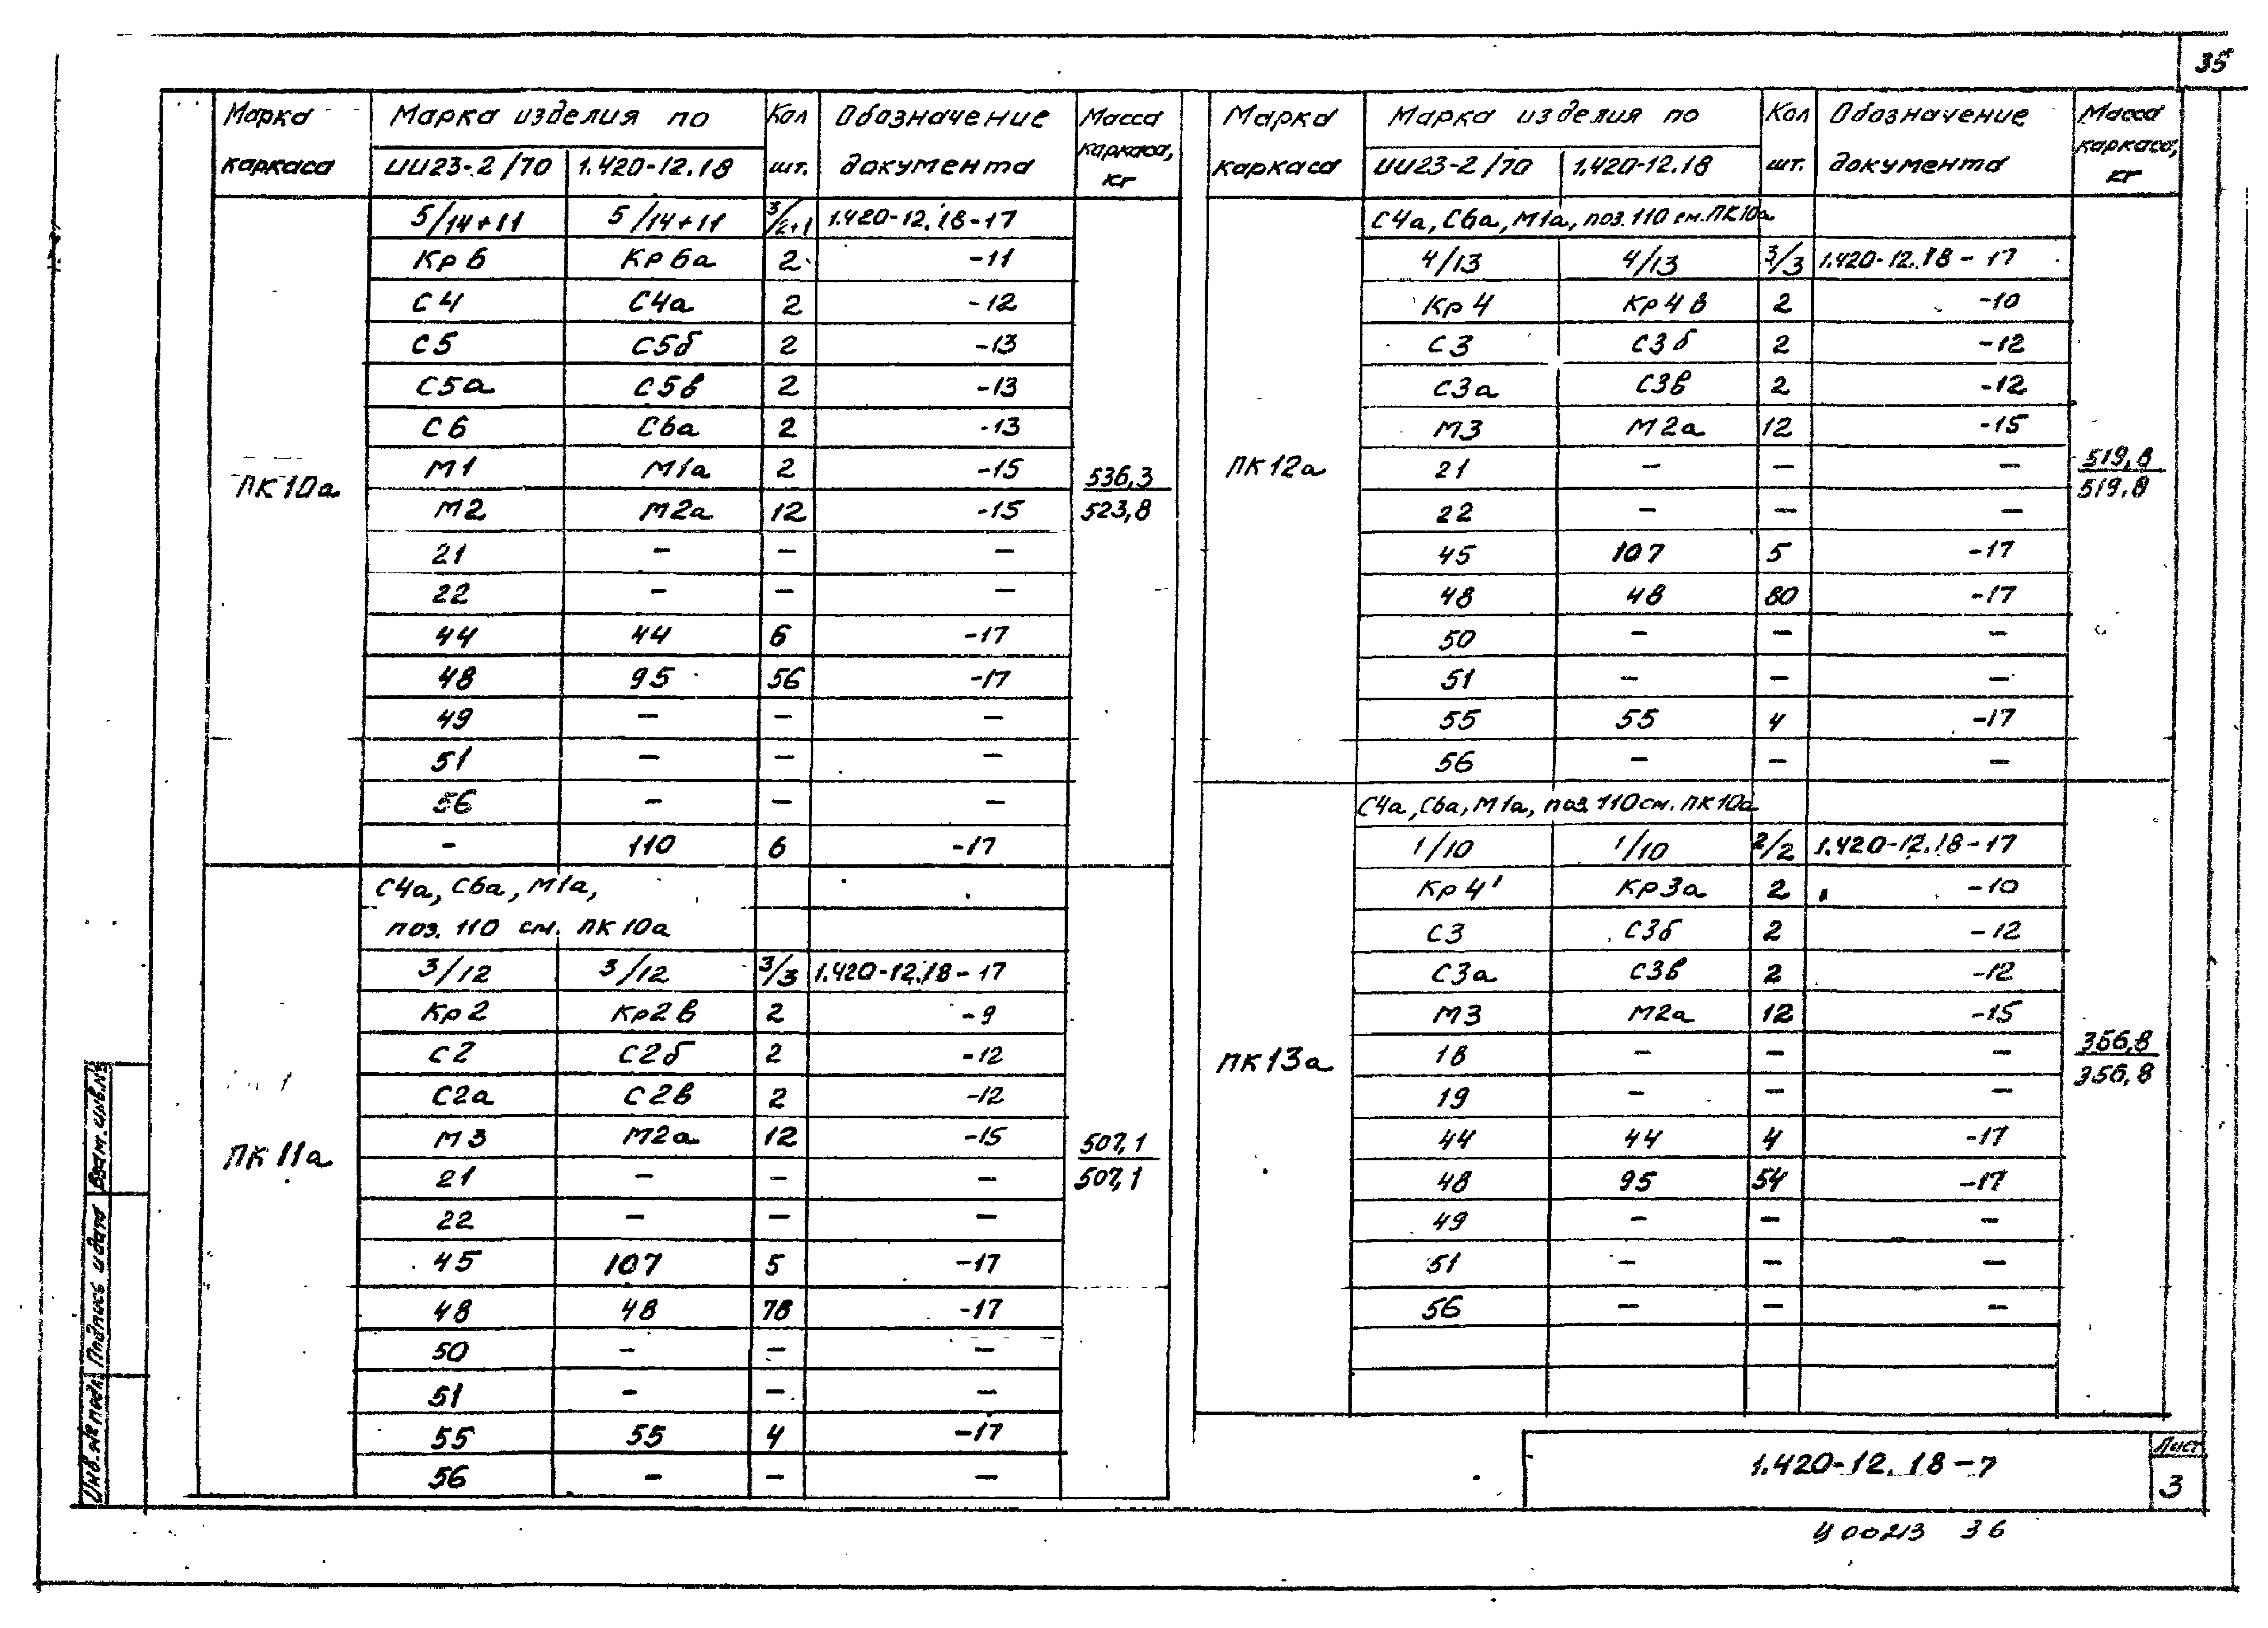 35
Марка каркаса | Марка изделия по | Кол шт. | Обозначение документа | Масса каркаса, кг
ИИ23-2/70 | 1.420-12.18
ПК10а
536,3
523,8
5/14+11 | 5/14+11 | 3/2+1 | 1.420-12.18-17
Кр6 | Кр6а | 2 | -11
С4 | С4а | 2 | -12
С5 | С5б | 2 | -13
С5а | С5в | 2 | -13
С6 | С6а | 2 | -13
М1 | М1а | 2 | -15
М2 | М2а | 12 | -15
21 | – | – | –
22 | – | – | –
44 | 44 | 6 | -17
48 | 95 | 56 | -17
49 | – | – | –
51 | – | – | –
56 | – | – | –
– | 110 | 6 | -17
ПК11а
507,1
507,1
С4а, С6а, М1а,
поз. 110 см. ПК10а
3/12 | 3/12 | 3/3 | 1.420-12.18-17
Кр2 | Кр2в | 2 | -9
С2 | С2б | 2 | -12
С2а | С2в | 2 | -12
М3 | М2а | 12 | -15
21 | – | – | –
22 | – | – | –
45 | 107 | 5 | -17
48 | 48 | 78 | -17
50 | – | – | –
51 | – | – | –
55 | 55 | 4 | -17
56 | – | – | –
Марка каркаса | Марка изделия по | Кол шт. | Обозначение документа | Масса каркаса, кг
ИИ23-2/70 | 1.420-12.18
ПК12а
519,8
519,8
С4а, С6а, М1а, поз. 110 см. ПК10а
4/13 | 4/13 | 3/3 | 1.420-12.18-17
Кр4 | Кр4в | 2 | -10
С3 | С3б | 2 | -12
С3а | С3в | 2 | -12
М3 | М2а | 12 | -15
21 | – | – | –
22 | – | – | –
45 | 107 | 5 | -17
48 | 48 | 80 | -17
50 | – | – | –
51 | – | – | –
55 | 55 | 4 | -17
56 | – | – | –
ПК13а
356,8
356,8
С4а, С6а, М1а, поз. 110 см. ПК10а
1/10 | 1/10 | 2/2 | 1.420-12.18-17
Кр4' | Кр3а | 2 | -10
С3 | С3б | 2 | -12
С3а | С3в | 2 | -12
М3 | М2а | 12 | -15
18 | – | – | –
19 | – | – | –
44 | 44 | 4 | -17
48 | 95 | 54 | -17
49 | – | – | –
51 | – | – | –
56 | – | – | –
Инв. № подл. Подпись и дата Взам. инв. №
1.420-12.18-7
Лист
3
Ц00213 36